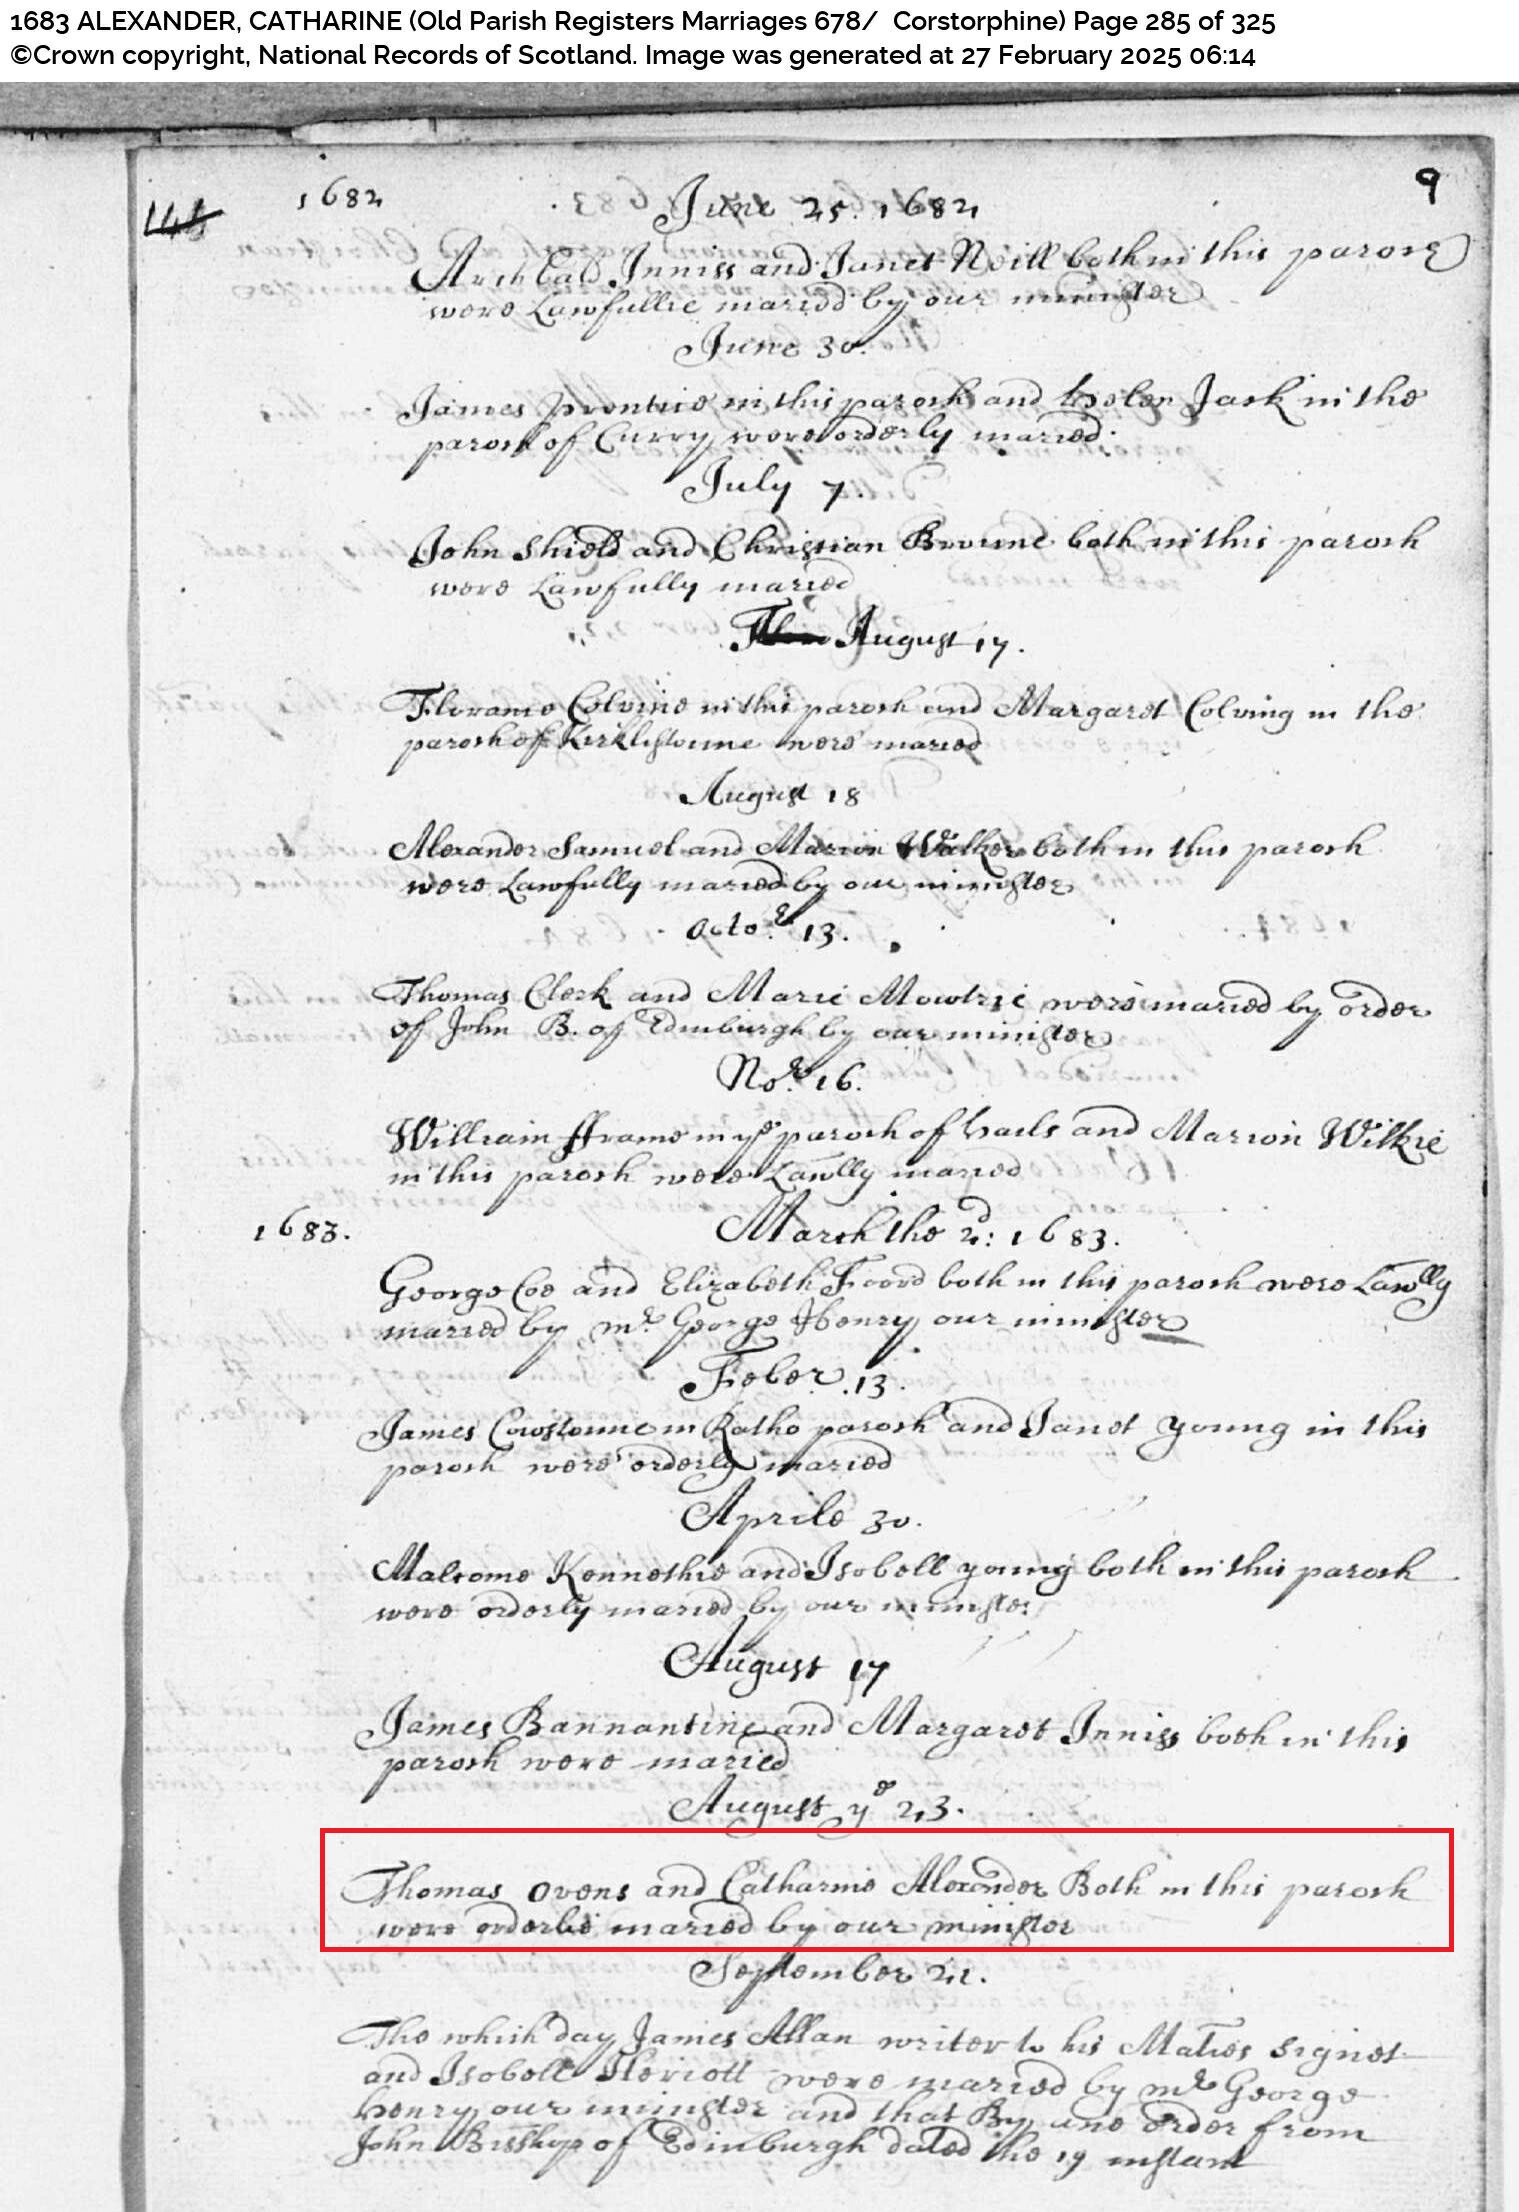 1683 ALEXANDER, CATHARINE (Old Parish Registers Marriages 678/ Corstorphine) Page 285 of 325
©Crown copyright, National Records of Scotland. Image was generated at 27 February 2025 06:14
9
1682
June 25. 1682
Archbald Inniss and Janet Neill both in this parosh
were Lawfullie maried by our minister
June 30.
James prentice in this parosh and Helen Jack in the
parosh of Curry were orderly maried.
July 7.
John Shield and Christian Broune both in this parosh
were Lawfully maried
August 17.
Colvine in this parosh and Margaret Colving in the
parosh of Kirklistoune were maried
August 18
Alexander Samuel and Marion Walker both in this parosh
were Lawfully maried by our minister
Octor. 13.
Thomas Clerk and Marie Mowtrie were maried by order
of John B. of Edinburgh by our minister
Nor. 16.
William fframe in ye parosh of hails and Marion Wilkie
in this parosh were Lawlly maried
1683.
March the 2d: 1683.
George Coe and Elizabeth Foord both in this parosh were Lawlly
maried by mr. George Henry our minister
Feber. 13.
James Cowstoune in Ratho parosh and Janet young in this
parosh were orderly maried
Aprile 30.
Malcome Kennethie and Isobell young both in this parosh
were orderly maried by our minister
August 17
James Bannantine and Margaret Inniss both in this
parosh were maried
August ye 23.
Thomas Ovens and Catharine Alexander Both in this parosh
were orderlie maried by our minister
September 21.
The which day James Allan writer to his Maties signet
and Isobell Heriott were maried by mr George
henry our minister and that By ane order from
John Bisshop of Edinburgh dated the 19 instant